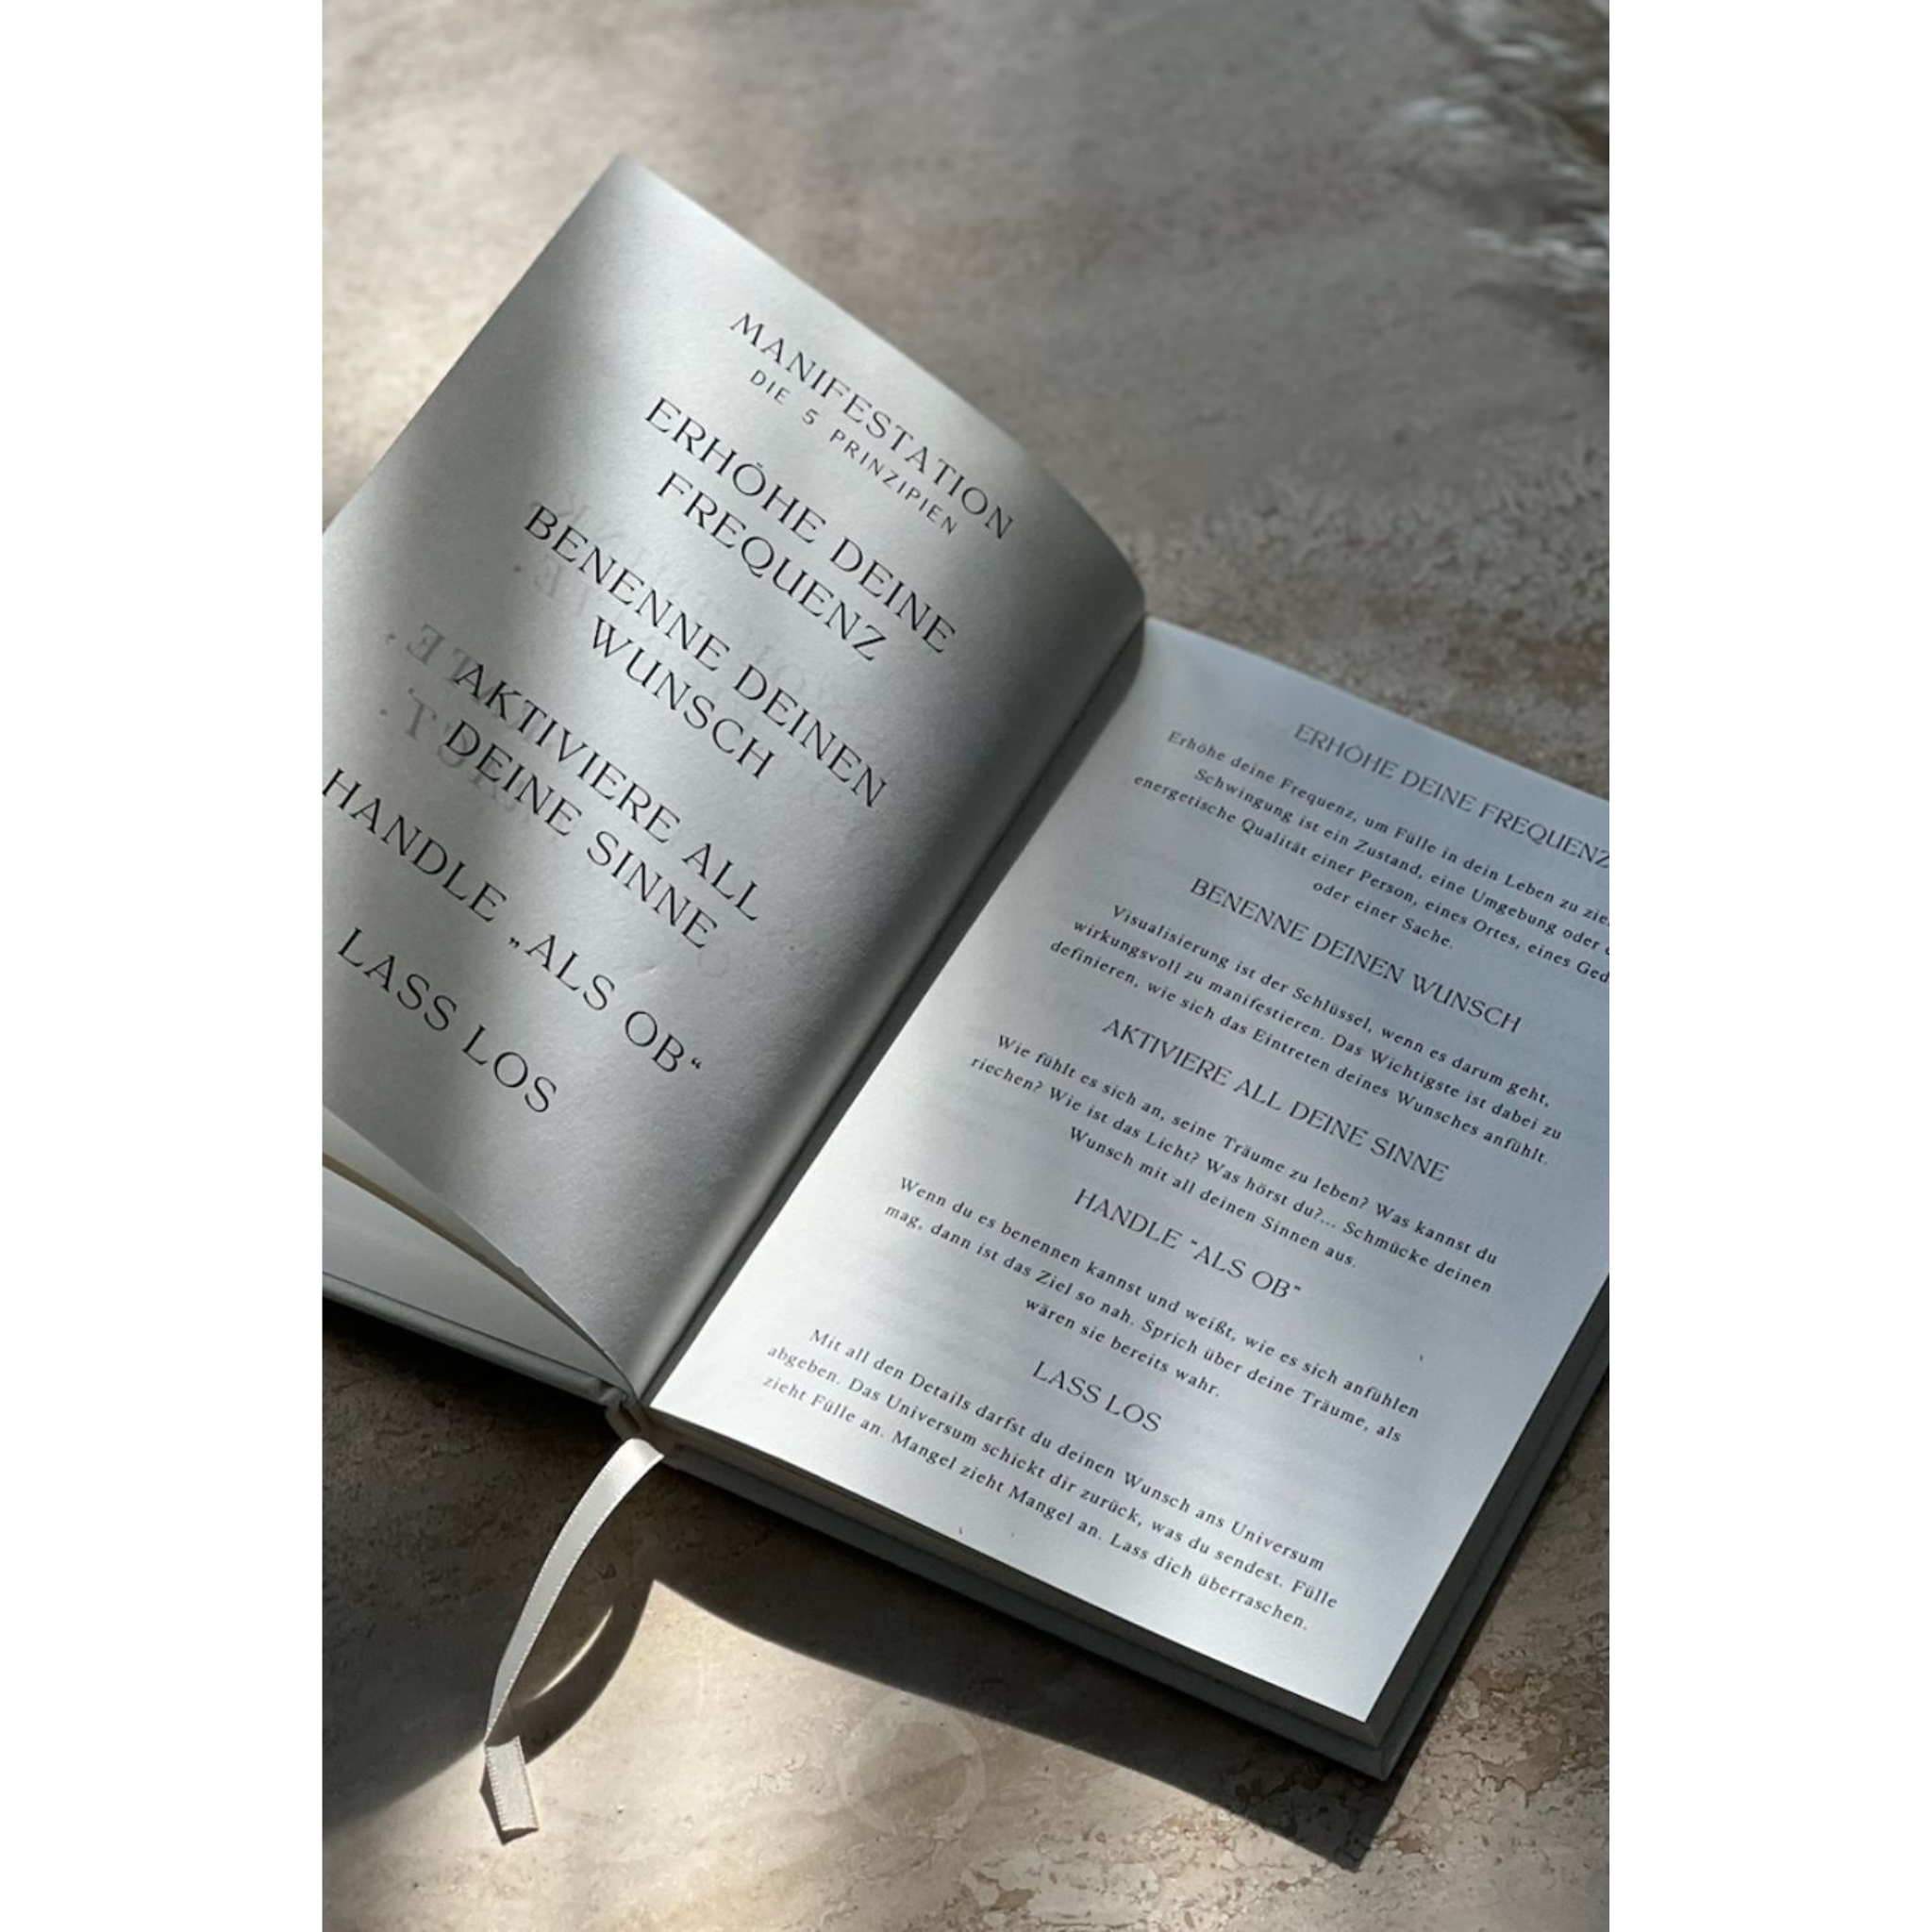 MANIFESTATION
DIE 5 PRINZIPIEN
ERHÖHE DEINE
FREQUENZ
BENENNE DEINEN
WUNSCH
AKTIVIERE ALL
DEINE SINNE
HANDLE „ALS OB“
LASS LOS
ERHÖHE DEINE FREQUENZ
Erhöhe deine Frequenz, um Fülle in dein Leben zu zie
Schwingung ist ein Zustand, eine Umgebung oder
energetische Qualität einer Person, eines Ortes, eines Ged
oder einer Sache.
BENENNE DEINEN WUNSCH
Visualisierung ist der Schlüssel, wenn es darum geht,
wirkungsvoll zu manifestieren. Das Wichtigste ist dabei zu
definieren, wie sich das Eintreten deines Wunsches anfühlt.
AKTIVIERE ALL DEINE SINNE
Wie fühlt es sich an, seine Träume zu leben? Was kannst du
riechen? Wie ist das Licht? Was hörst du?... Schmücke deinen
Wunsch mit all deinen Sinnen aus.
HANDLE "ALS OB"
Wenn du es benennen kannst und weißt, wie es sich anfühlen
mag, dann ist das Ziel so nah. Sprich über deine Träume, als
wären sie bereits wahr.
LASS LOS
Mit all den Details darfst du deinen Wunsch ans Universum
abgeben. Das Universum schickt dir zurück, was du sendest. Fülle
zieht Fülle an. Mangel zieht Mangel an. Lass dich überraschen.